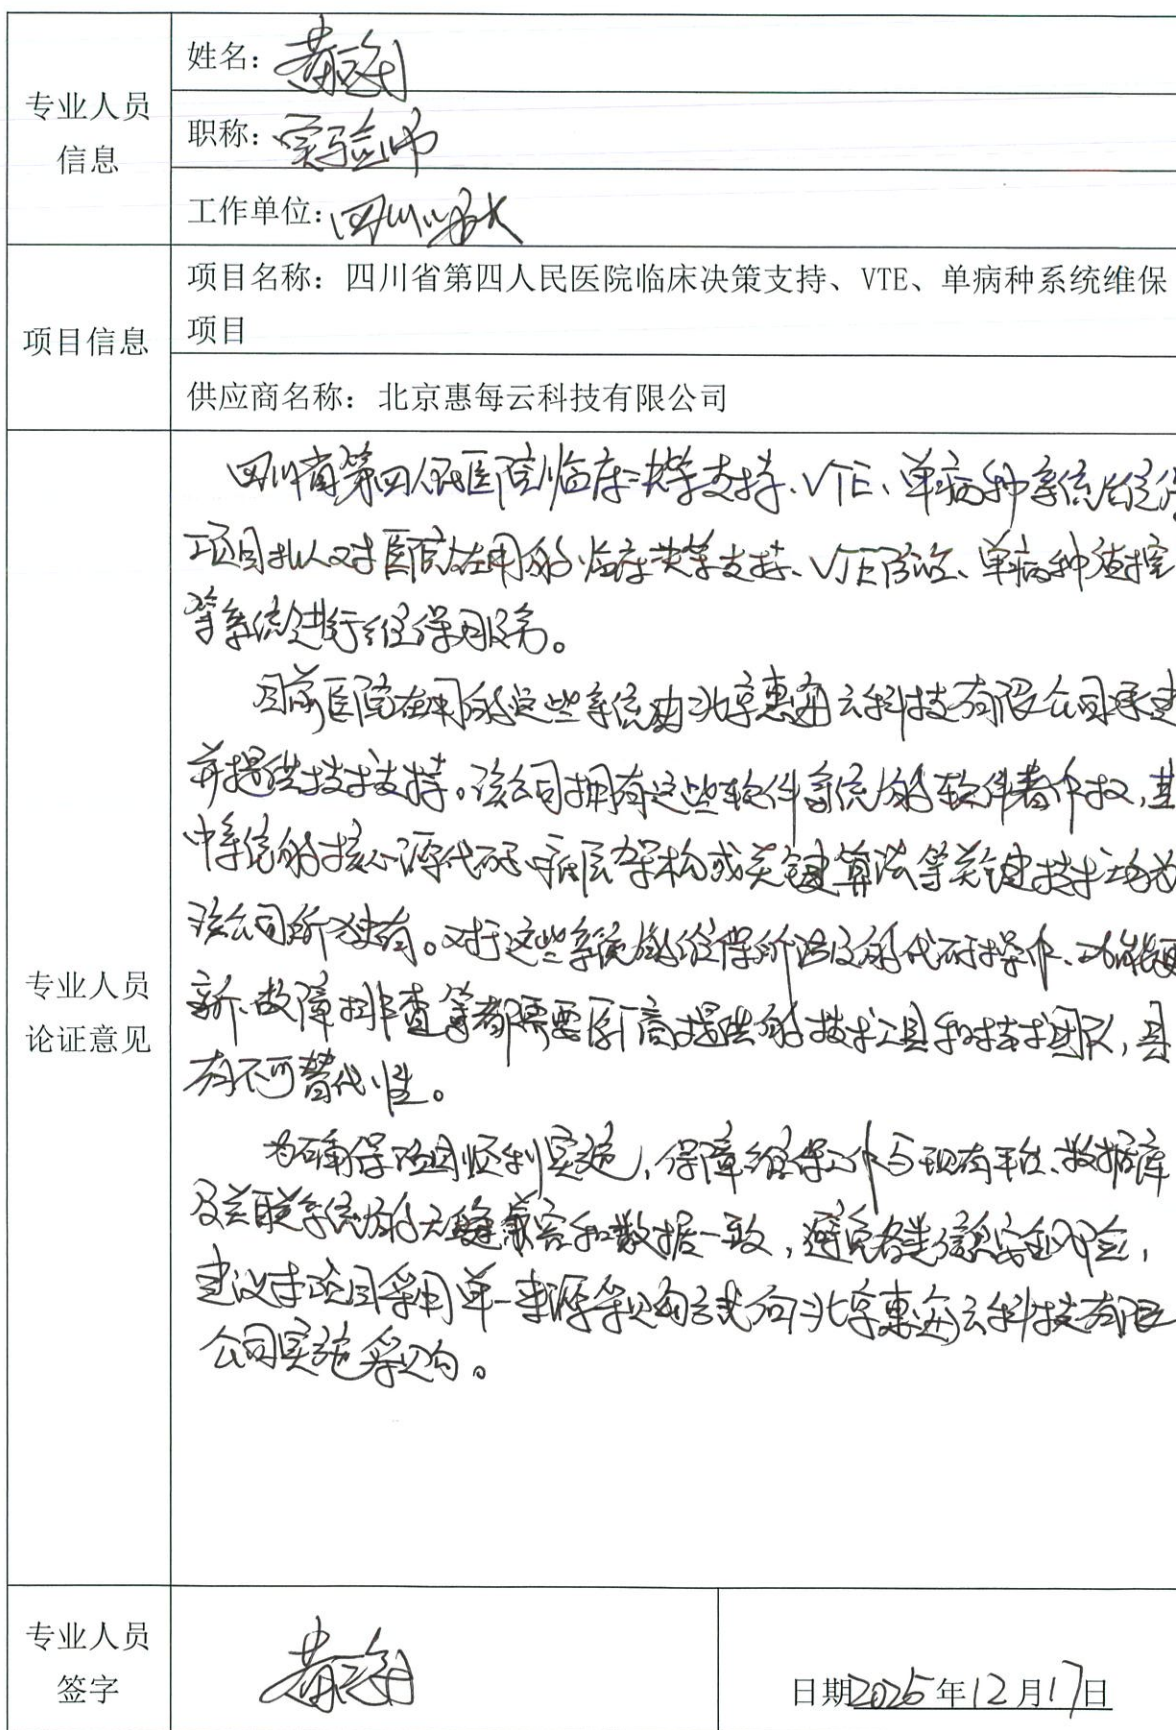 专业人员
信息
姓名：
职称：实验师
工作单位：四川大
项目信息
项目名称：四川省第四人民医院临床决策支持、VTE、单病种系统维保
项目
供应商名称：北京惠每云科技有限公司
专业人员
论证意见
四川省第四人民医院临床决策支持、VTE、单病种系统维保
项目拟对医院在用的临床决策支持、VTE防治、单病种质控
等系统进行维保服务。
目前医院在用的这些系统由北京惠每云科技有限公司承建
并提供技术支持。该公司拥有这些软件系统的软件著作权，其
中系统的核心源代码、底层架构或关键算法等关键技术均为
该公司所独有。对于这些系统的维保所涉及的代码操作、功能更
新、故障排查等都需要原厂商提供的技术工具和技术团队，具
有不可替代性。
为确保项目顺利实施，保障维保工作与现有平台、数据库
及关联系统的无缝兼容和数据一致，避免各类信息安全风险，
建议本项目采用单一来源采购方式向北京惠每云科技有限
公司实施采购。
专业人员
签字
日期2025年12月17日